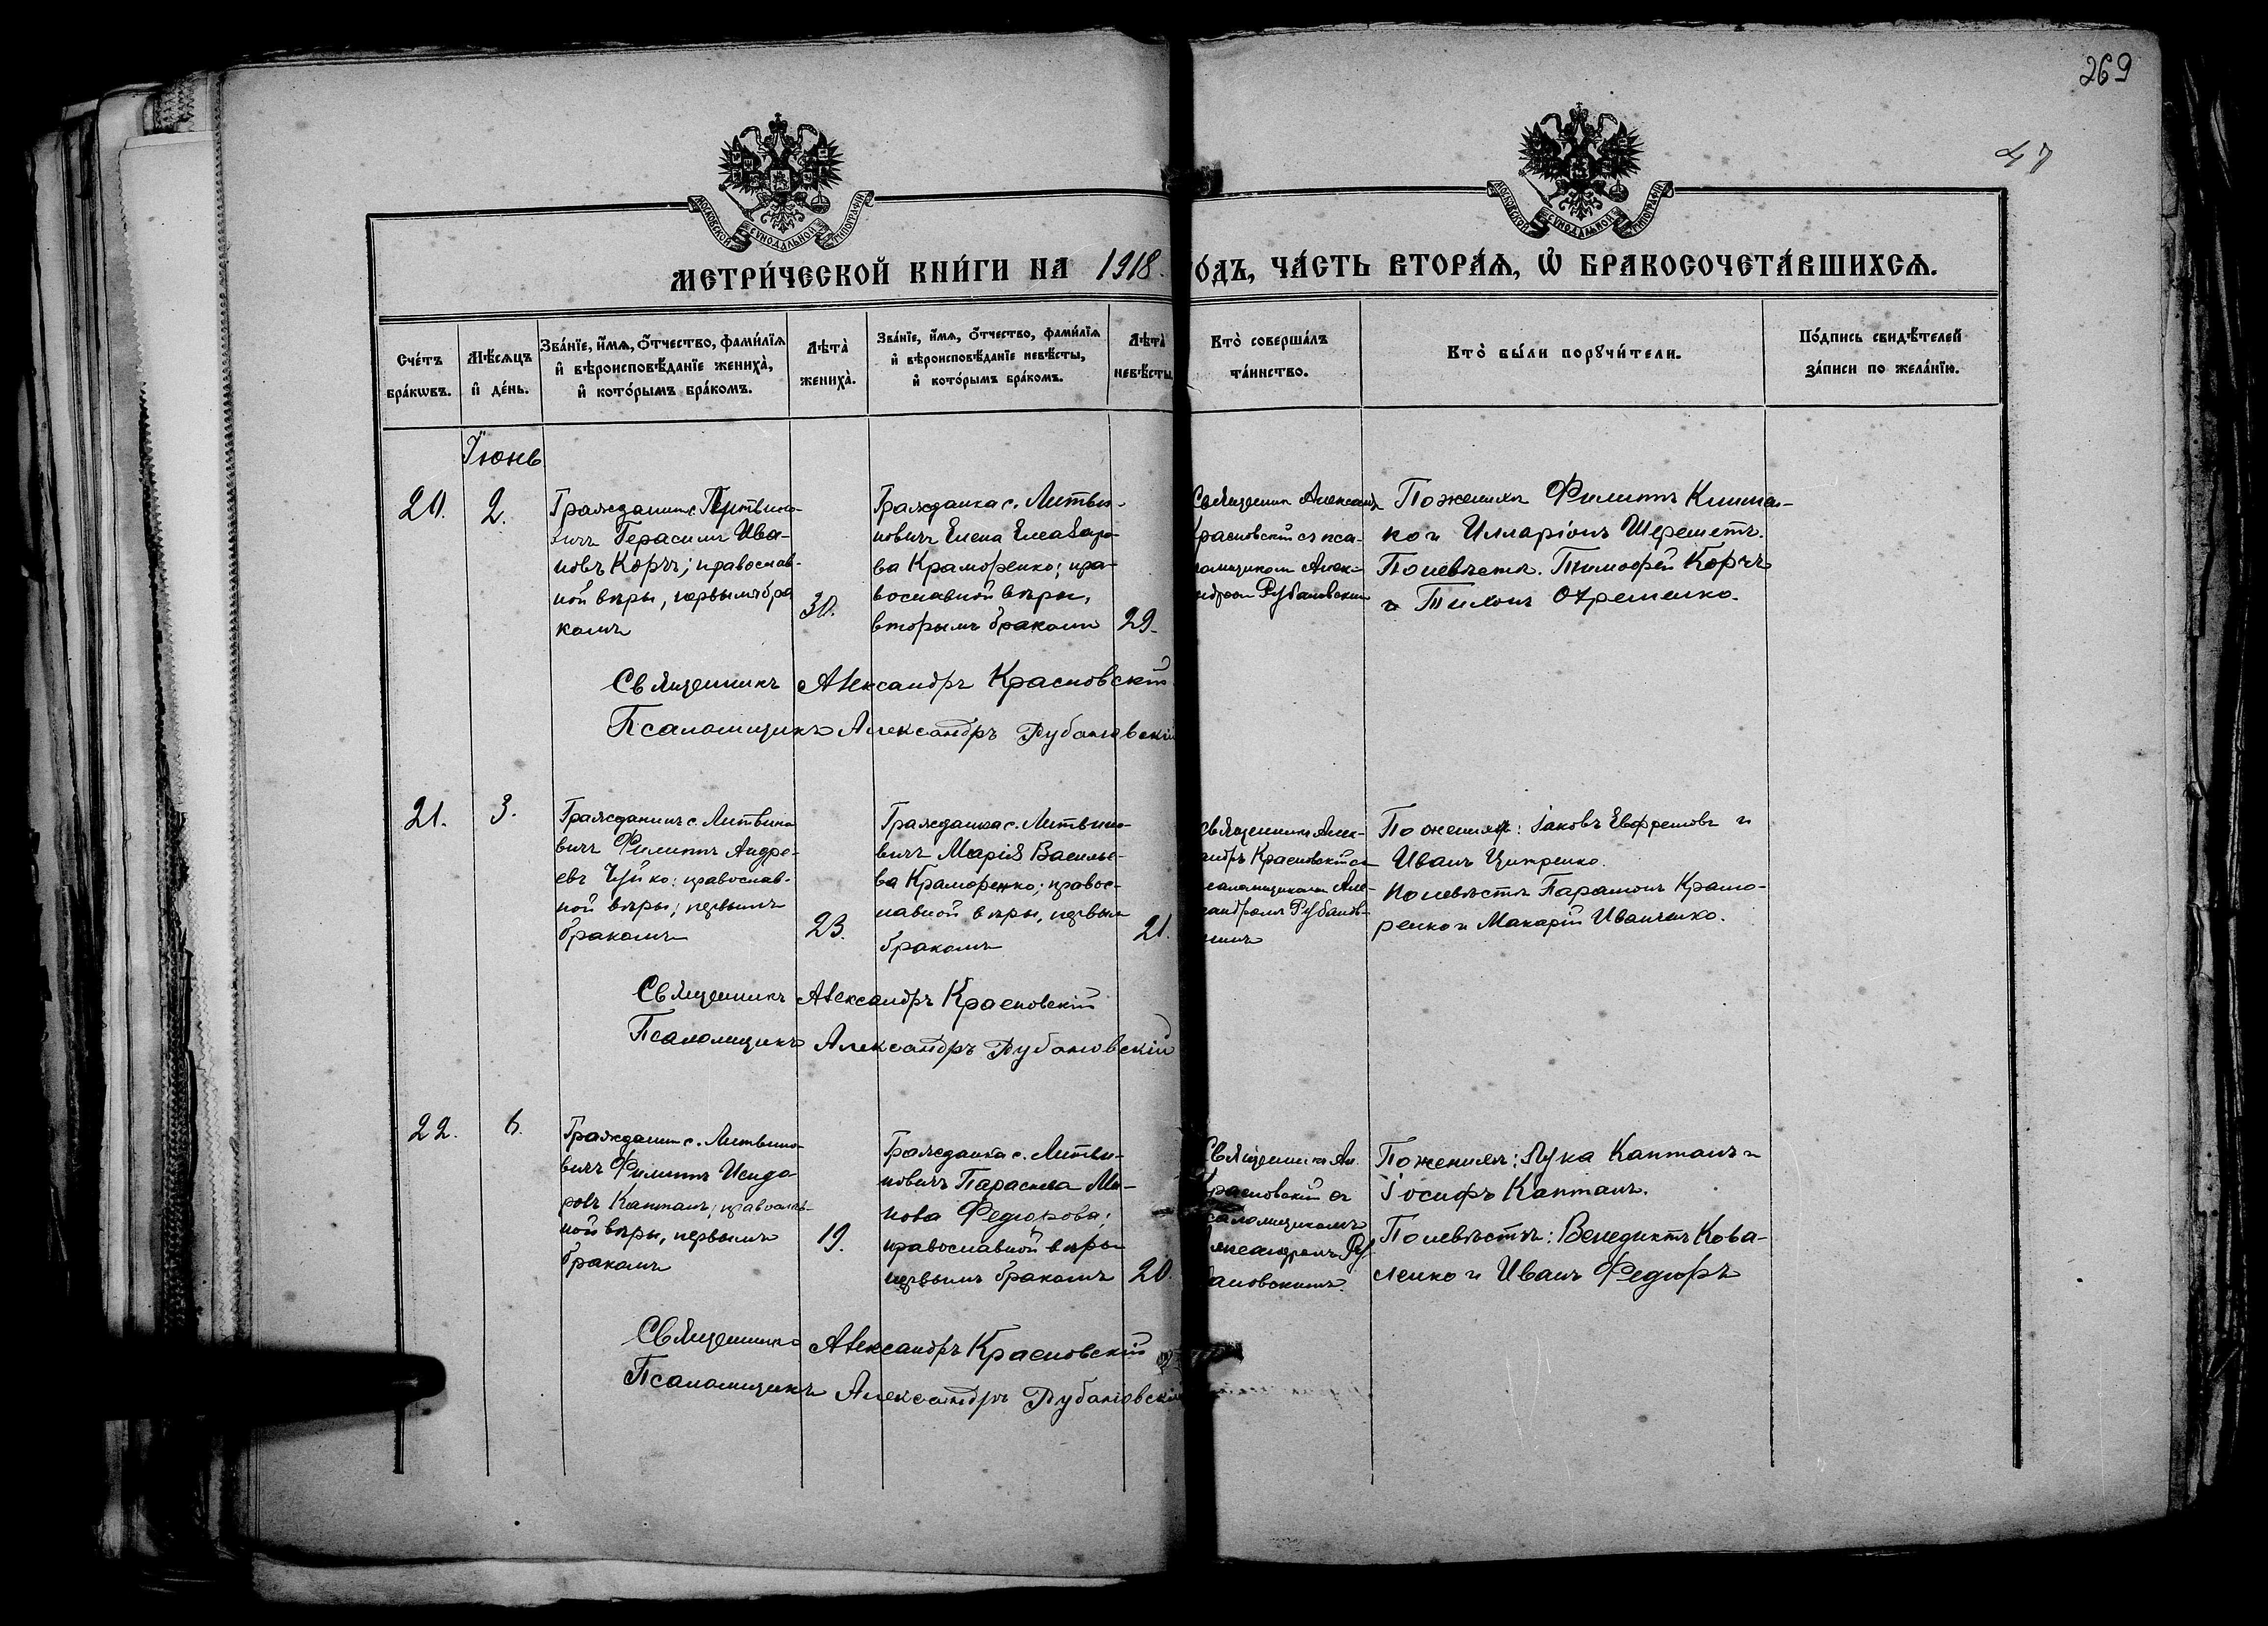 269
47
МОСКОВСКОЙ СѴНОДАЛЬНОЙ ТИПОГРАФІИ
МОСКОВСКОЙ СѴНОДАЛЬНОЙ ТИПОГРАФІИ
МЕТРИ́ЧЕСКОЙ КНИ́ГИ НА 1918. О́ДЪ, ЧА́СТЬ ВТОРА́Ѧ, Ѽ БРАКОСОЧЕТА́ВШИХСѦ.
Сче́тъ
бра́кѡвъ.
Мѣ́сѧцъ
и҆ де́нь.
Зва́нїе, и҆́мѧ, ѻ҆́тчество, фами́лїѧ
и҆ вѣроисповѣ́данїе жениха̀,
и҆ кото́рымъ бра́комъ.
Лѣта̀
жениха̀.
Зва́нїе, и҆́мѧ, ѻ҆́тчество, фами́лїѧ
и҆ вѣроисповѣ́данїе невѣ́сты,
и҆ кото́рымъ бра́комъ.
Лѣта̀
невѣ́сты.
Кто̀ соверша́лъ
та́инство.
Кто̀ бы́ли порꙋчи́тели.
По́дпись свидѣ́телей
за́писи по жела́нїю.
Іюнь
20.
2.
Гражданинъ с.
вичъ Герасимъ Ива-
новъ Коржъ; православ-
ной вѣры, первымъ бра
комъ
30.
Гражданка с. Литви-
новичъ Елена Елеазаро-
ва Краморенко; пра-
вославной вѣры,
вторымъ бракомъ
29.
Священникъ Александръ
Красновскій съ пса-
ломщикомъ Алек-
ндромъ Рубановскимъ
По женихѣ Филиппъ Клима-
ко и Илларіонъ Шереметъ.
По невѣстѣ. Тимофей Коржъ
и Тихонъ
Священникъ Александръ Красновскій
Псаломщикъ Александръ Рубановскій
21.
3.
Гражданинъ с. Литвино
вичъ Филиппъ Андре-
евъ Чуйко: православ-
ной вѣры; первымъ
бракомъ
23.
Гражданка с. Литвино-
вичъ Марія Василье-
ва Краморенко; правос-
лавной вѣры, первымъ
бракомъ
21.
Священникъ Алек-
андръ Красновскій съ
саломщикомъ Але-
сандромъ Рубанов-
скимъ
По женихѣ: Іаковъ Евфремовъ и
Иванъ Цитренко.
По невѣстѣ Парамонъ Крамо-
ренко и Макарій Иванченко.
Священникъ Александръ Красновскій
Псаломщикъ Александръ Рубановскій
22.
6.
Гражданинъ с. Литвино-
вичъ Филиппъ Исидо-
ровъ Каптанъ; православ-
ной вѣры, первымъ
бракомъ
19.
Гражданка с. Литви-
новичъ Параскева Ми-
нова Федюрова;
православной вѣры
первымъ бракомъ
20.
Священникъ Ал.
Красновскій съ
саломщикомъ
лександромъ Ру-
бановскимъ.
По женихѣ: Лука Каптанъ и
Іосифъ Каптанъ.
По невѣстѣ: Венедиктъ Кова-
ленко и Иванъ Федюръ
Священникъ Александръ Красновскій
Псаломщикъ Александръ Рубановскій